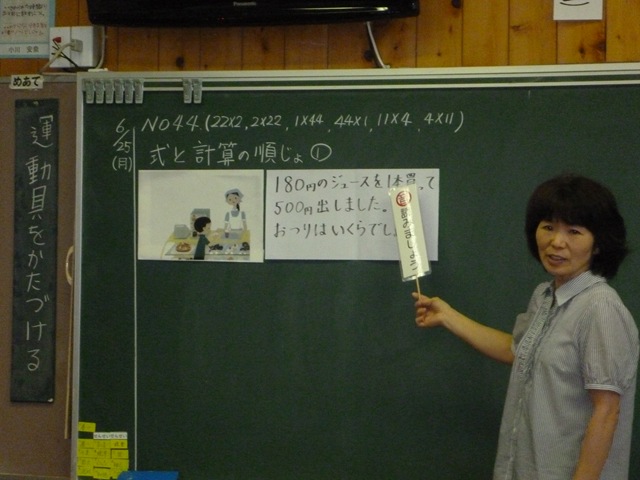 Panasonic
めあて
運動具をかたづける
6/25(月)
NO44(22×2, 2×22, 1×44, 44×1, 11×4, 4×11)
式と計算の順じょ①
180円のジュースを1本買って
500円出しました。
おつりはいくらでし
読みましょう